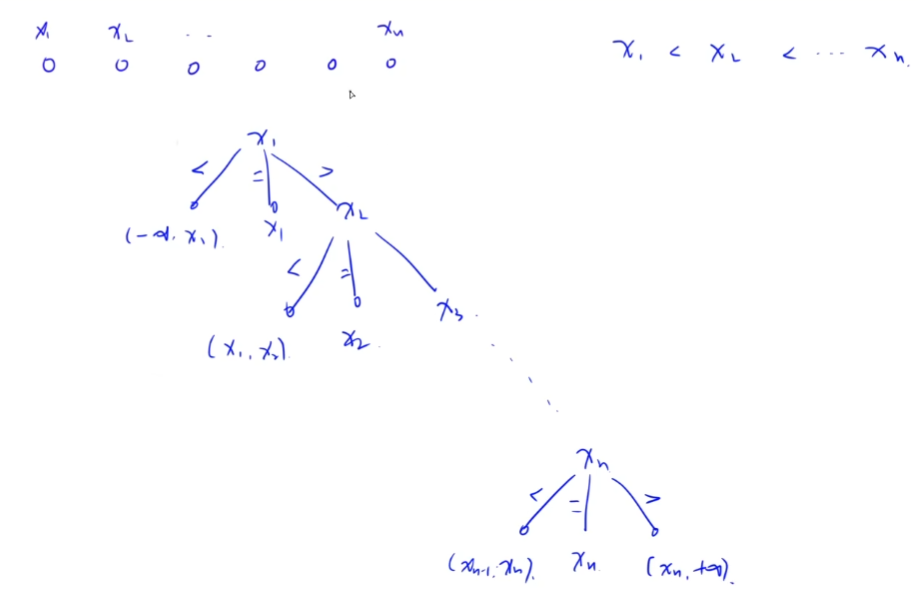 x₁ x₂ ·· xₙ
x₁ < x₂ < ··· xₙ.
x₁
< = >
(-∞, x₁) x₁ x₂
< =
(x₁, x₂) x₂ x₃
xₙ
< = >
(xₙ₋₁, xₙ). xₙ (xₙ, +∞).